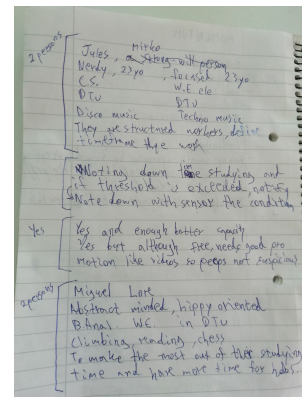 2 persons
Jules, Mirko
Nerdy, 23yo, focused 23yo
C.S. W.E. ele
DTU DTU
Disco music Techno music
They are structured workers, define
timeframe they work
Noting down time studying and
if threshold is exceeded, notify
Note down with sensor the condition
Yes Yes and enough battery capacity
Yes but although free, needs good pro
motion like videos so peeps not suspicious
2 persons Miguel Lore
Abstract minded, hippy oriented
B.Anal W.E. in DTU
Climbing, reading, chess
To make the most out of their studying
time and have more time for hobs.